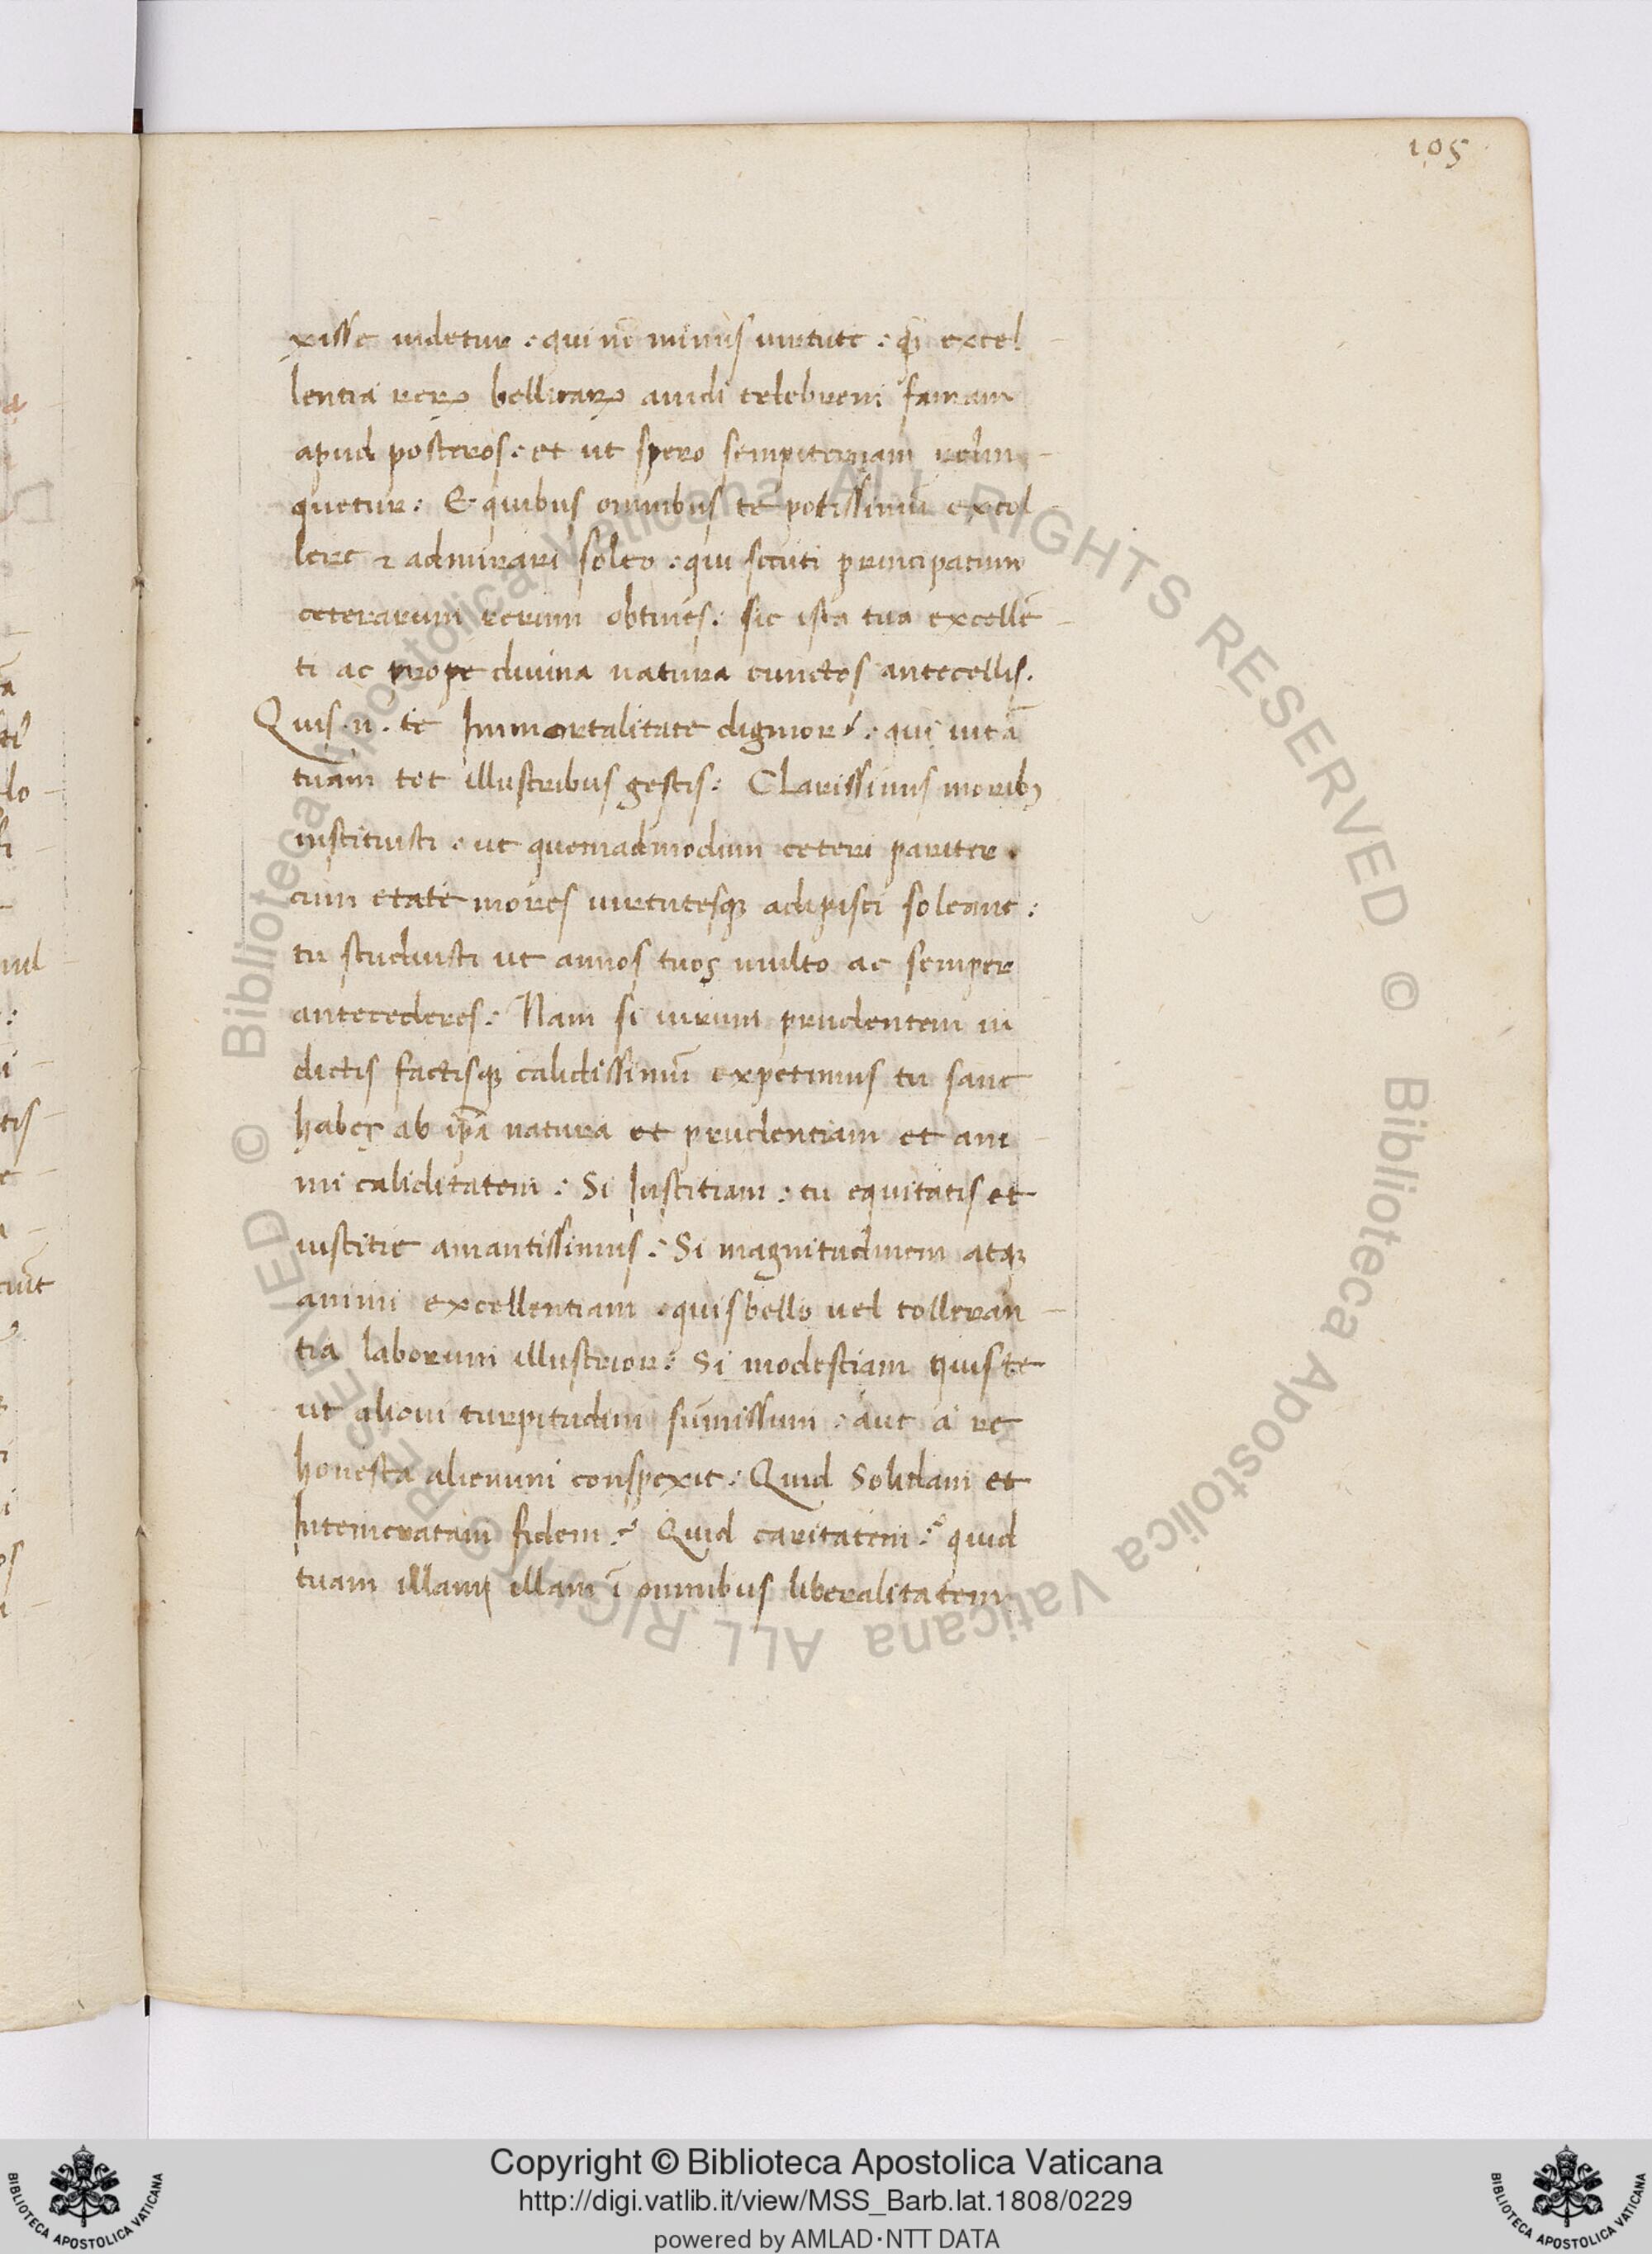 105
xisse uidetur : qui nõ minus uirtute : q̃ excel
lentia rerꝝ bellicarꝝ auidi celebrem famam
apud posteros : et ut spero sempiternam relin
quetur : E quibus omnibus te potissimũ extol
lere ⁊ admirari soleo : qui sicuti principatum
ceterarum rerum obtines : sic ista tua excellẽ
ti ac prope diuina natura cunctos antecellis.
Quis .n. te Immortalitate dignior ? : qui uitã
tuam tot illustribus gestis : Clarissimis moribꝫ
instituisti : ut quemadmodum ceteri pariter
cum etate mores uirtutesqꝫ adipisci soleant :
tu studuisti ut annos tuos multo ac semper
antecederes : Nam si uirum prudentem in
dictis factisqꝫ calidissimũ expetimus tu sane
habes ab ip̃a natura et prudentiam et ani
mi caliditatem : Si Iustitiam : tu equitatis et
iustitie amantissimus : Si magnitudinem atqꝫ
animi excellentiam : quis bello uel tolleran
tia laborum illustrior : Si modestiam quis te
ut alicui turpitudini sũmissum : aut a re
honesta alienum conspexit : Quid Solidam et
Intemeratam fidem ? Quid caritatem : ? quid
tuam illam illam ĩ omnibus liberalitatem
© Biblioteca Apostolica Vaticana ALL RIGHTS RESERVED © Biblioteca Apostolica Vaticana ALL RIGHTS RESERVED
Copyright © Biblioteca Apostolica Vaticana
http://digi.vatlib.it/view/MSS_Barb.lat.1808/0229
powered by AMLAD·NTT DATA
BIBLIOTECA APOSTOLICA VATICANA
BIBLIOTECA APOSTOLICA VATICANA